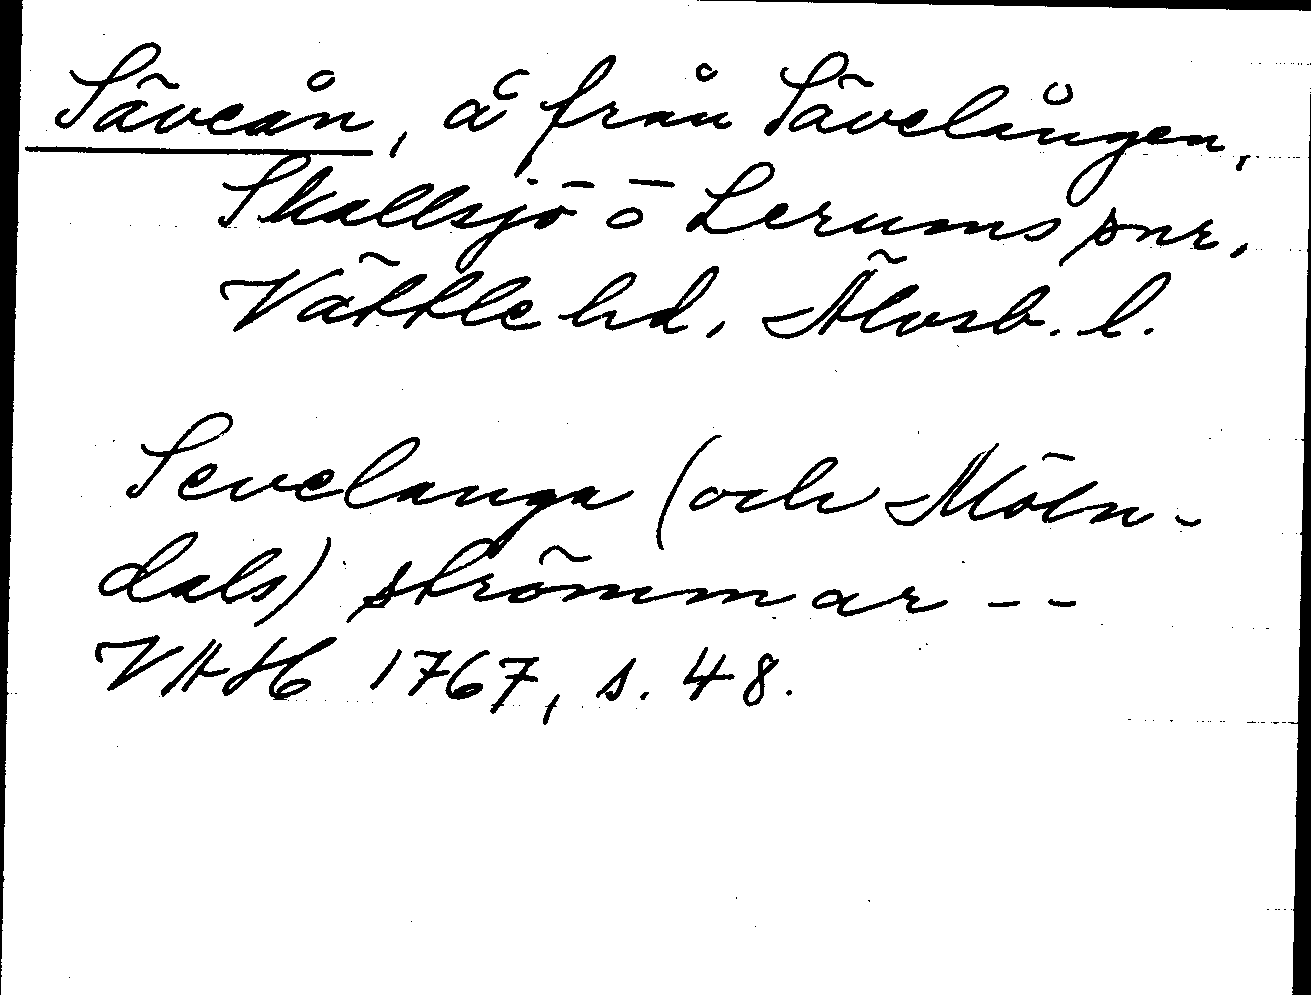 Säveån, å från Sävelången,
Skallsjö o Lerums snr,
Vättle hd, Älvsb. l.
Sevelanga (och Möln-
dals) strömmar --
VAH 1767, s. 48.